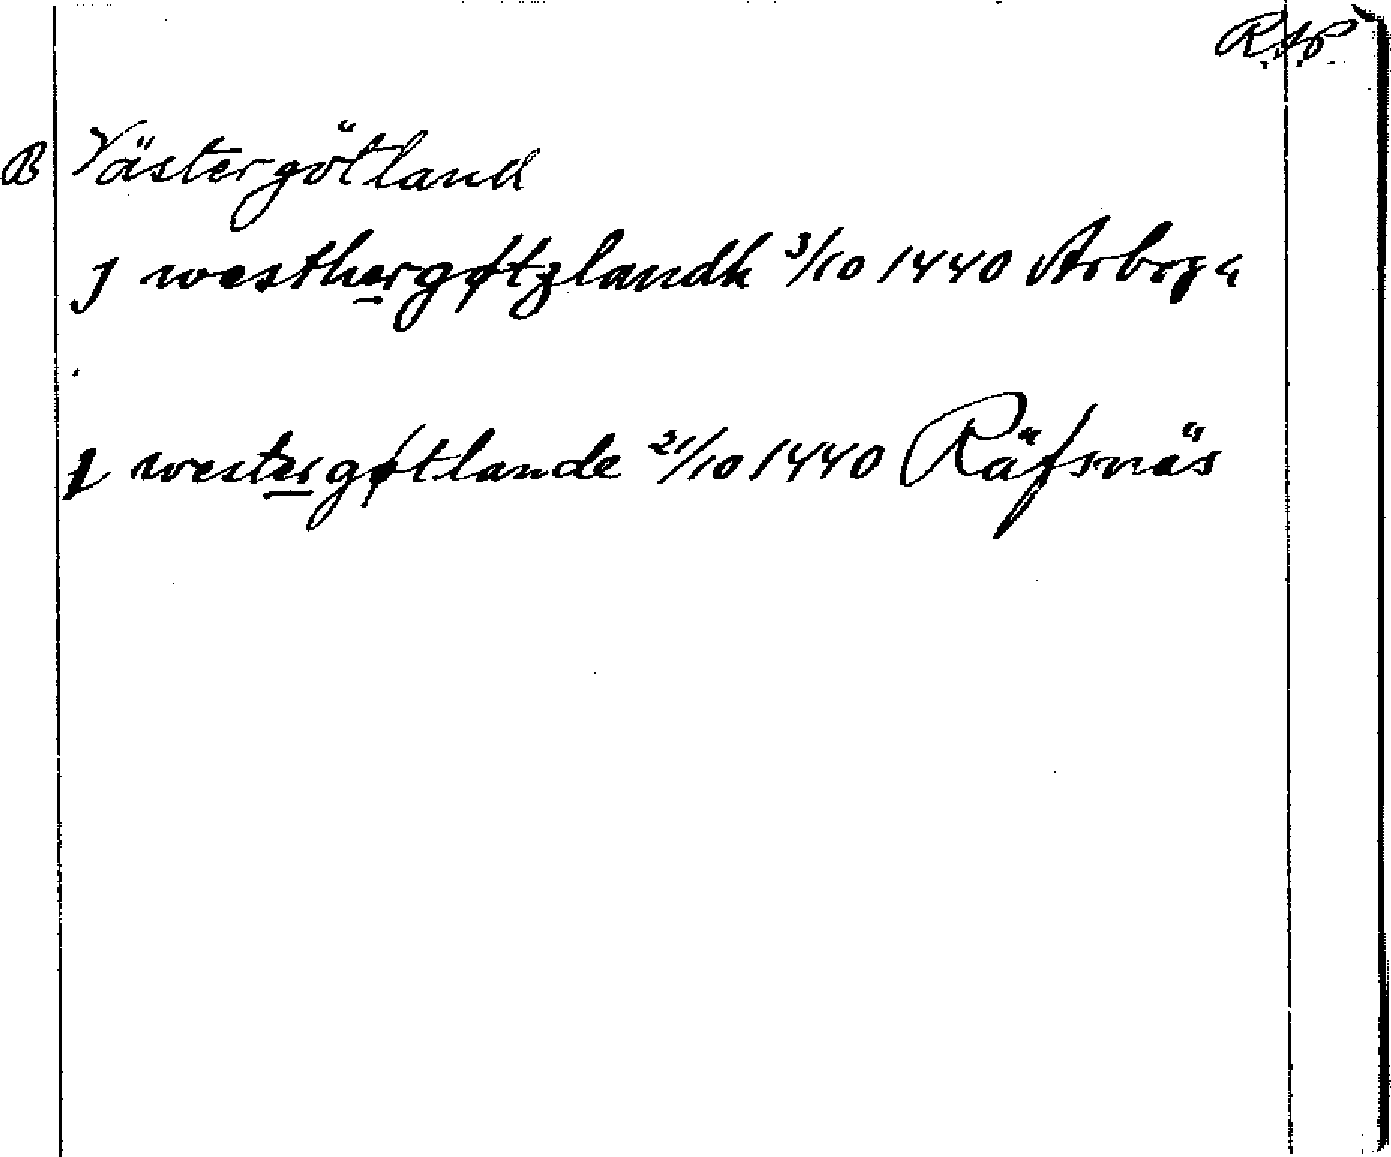 RAP
B Västergötland
J westhergøtzlandh 3/10 1440 Arboga
J westergøtlande 21/10 1440 Räfsnäs